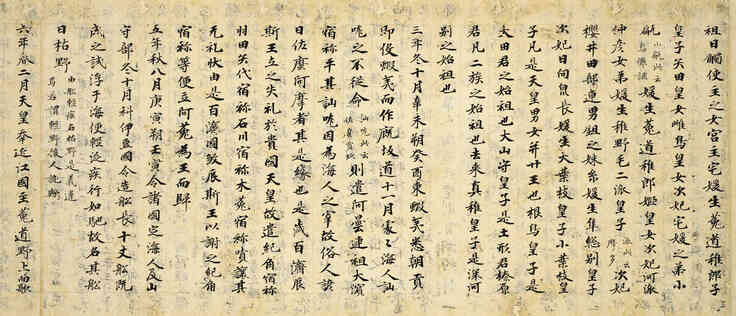 祖日觸使主之女宮主宅媛生菟道稚郎子
皇子矢田皇女雌鳥皇女次妃宅媛之弟小
甂媛生菟道稚郎姬皇女次妃河派
仲彦女弟媛生稚野毛二派皇子 派此云摩多 次妃
櫻井田部連男鉏之妹糸媛生隼總別皇子
次妃日向泉長媛生大葉枝皇子小葉枝皇
子凡是天皇男女并廿王也根鳥皇子是
大田君之始祖也大山守皇子是土形君榛原
君凡二族之始祖也去来真稚皇子是深河
別之始祖也
三年冬十月辛未朔癸酉東蝦夷悉朝貢
即役蝦夷而作厩坂道十一月處々海人訕
哤之不從命 訕哤此云佐麼賣玖 則遣阿曇連祖大濱
宿祢平其訕哤因為海人之宰故俗人諺
曰佐麼阿摩者其是緣也是歲百濟辰
斯王立之失礼於貴國天皇故遣紀角宿祢
羽田矢代宿祢石川宿祢木菟宿祢嘖讓其
无礼狀由是百濟國殺辰斯王以謝之紀角
宿祢等便立阿花為王而歸
五年秋八月庚寅朔壬寅令諸國定海人及山
守部冬十月科伊豆國令造船長十丈船既
成之試浮于海便輕泛疾行如馳故名其船
曰枯野 由船輕疾名枯野是義違焉若謂輕野後人訛歟
六年春二月天皇幸近江國至菟道野上而歌